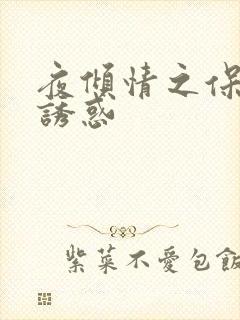 夜傾情之保
誘惑
紫菜不愛包飯